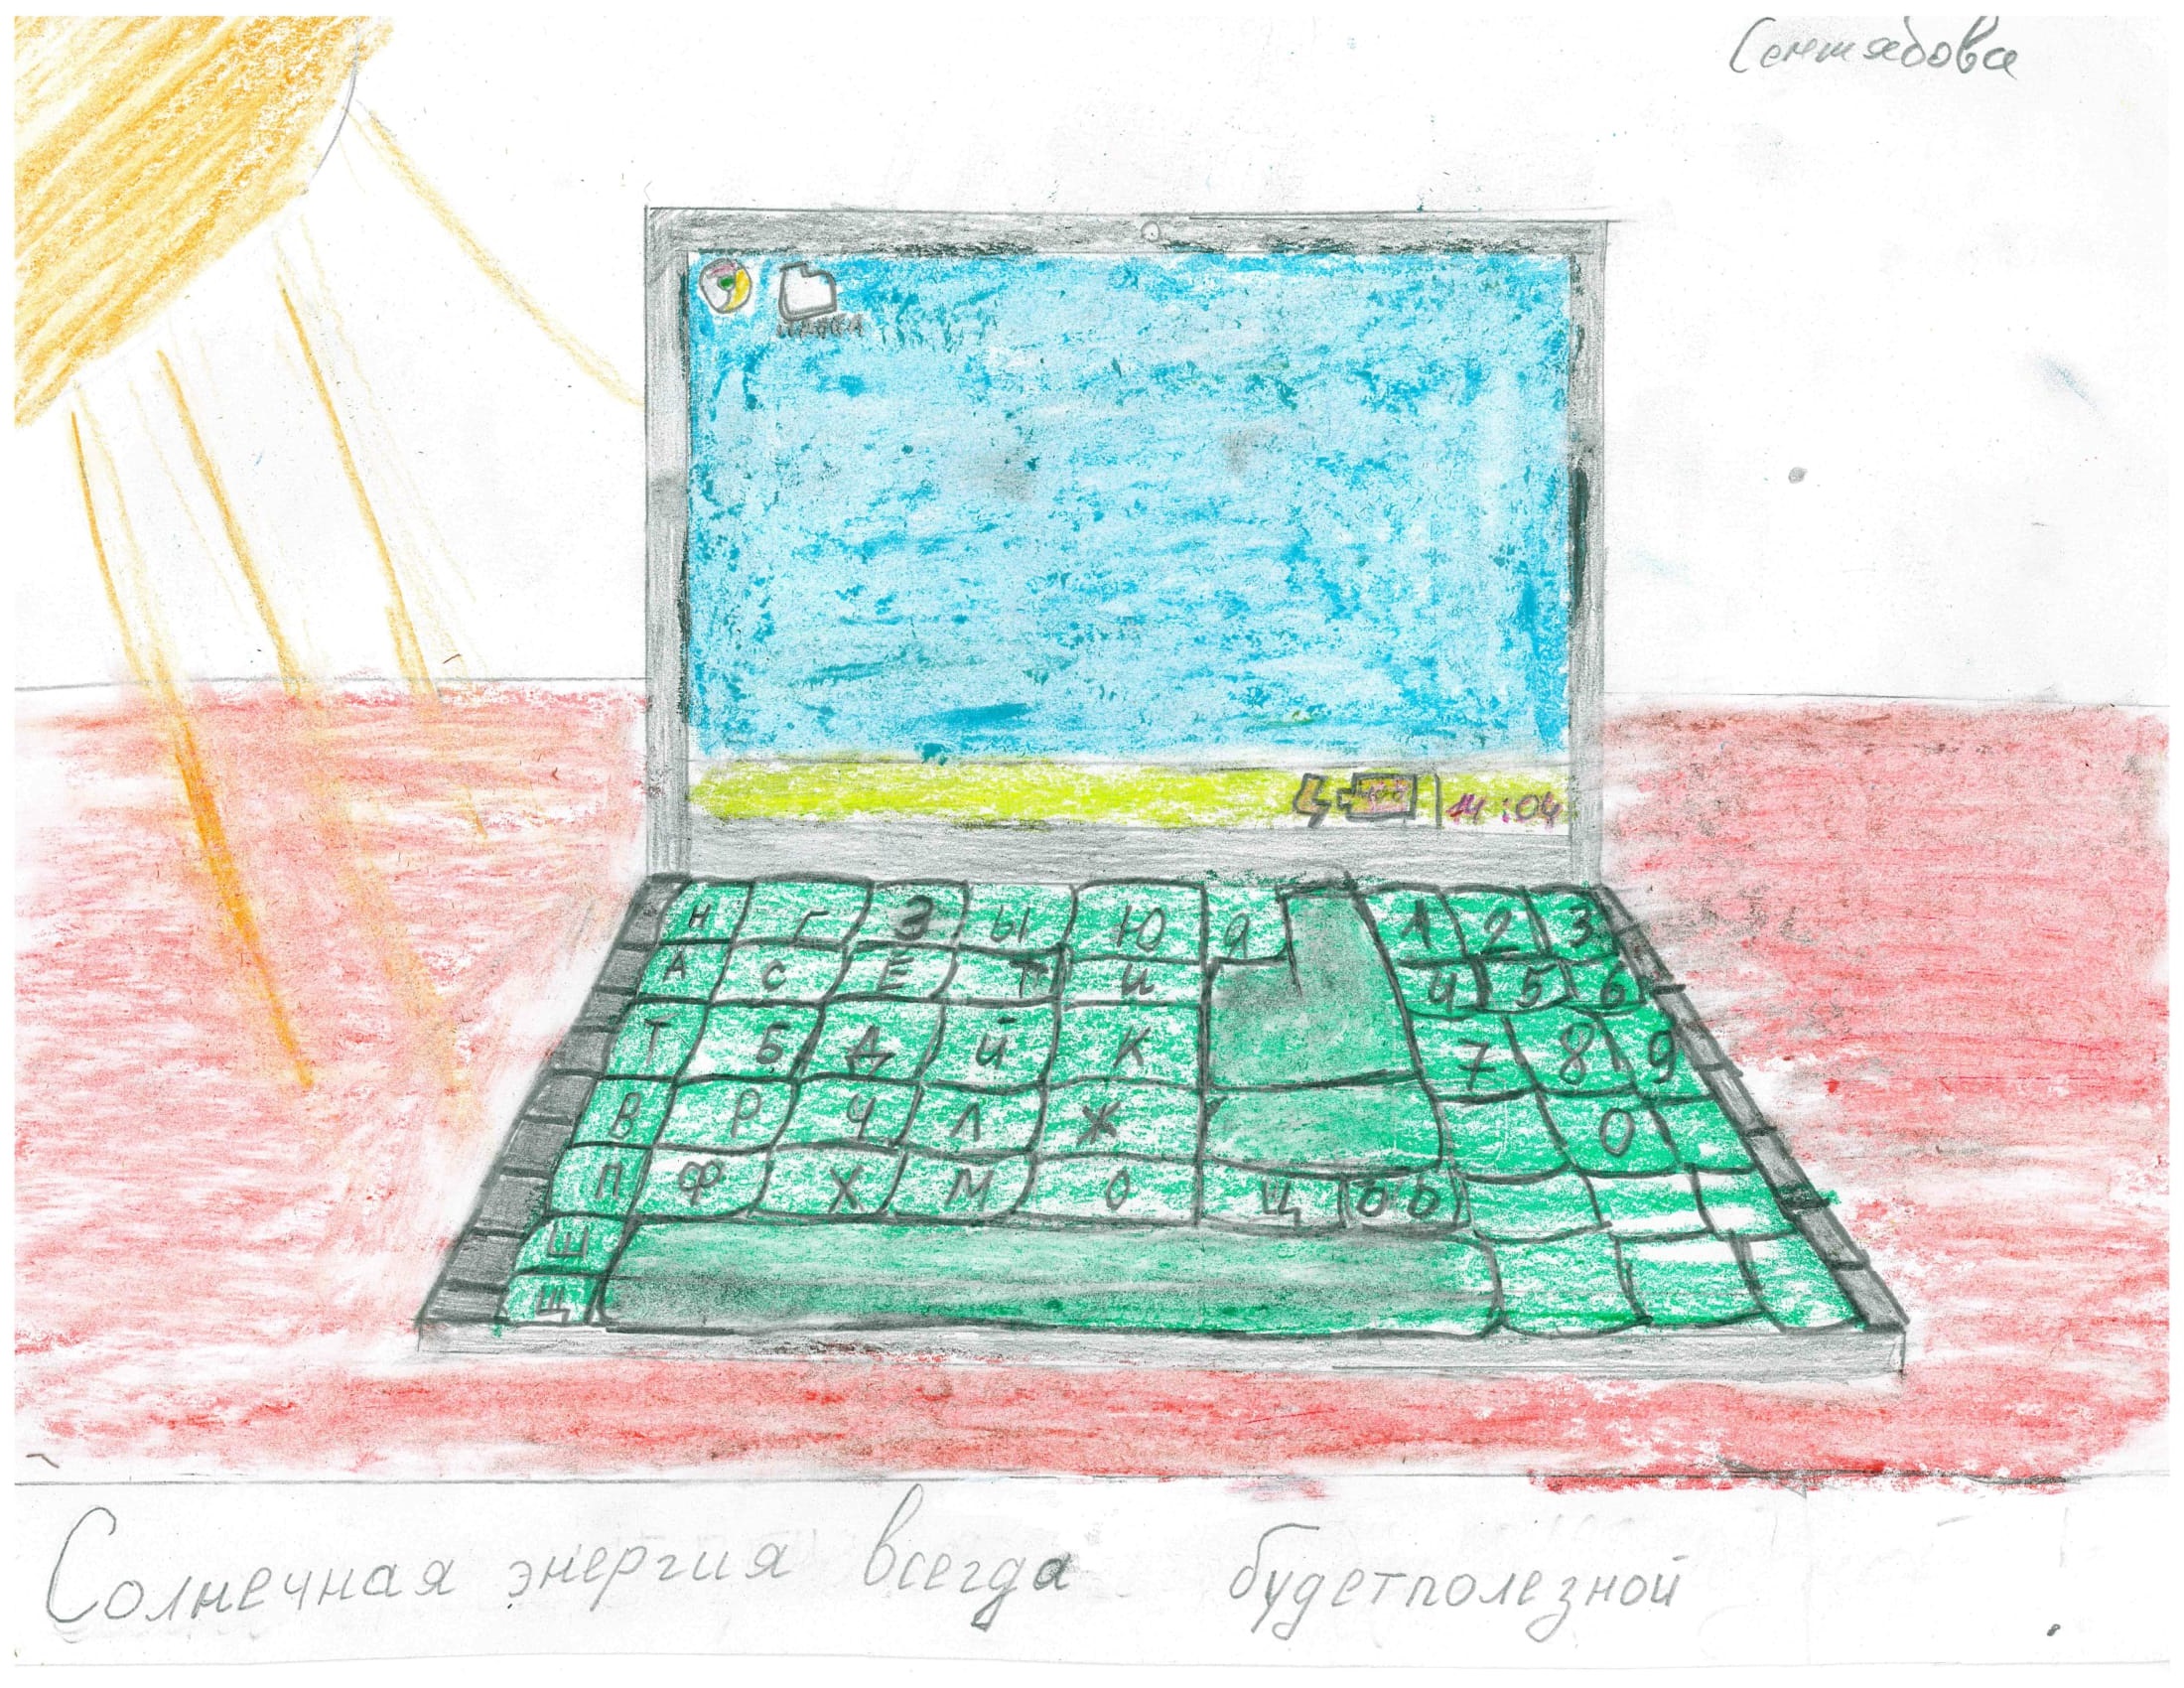 Сентябова
папка
100 14:04
Н Г З Ы Ю Я 1 2 3
А С Ё Т И 4 5 6
Т Б Д Й К 7 8 9
В Р Ч Л Ж 0 .
П Ф Х М О Ц Ь Ъ
Ш
Щ
Солнечная энергия всегда будет полезной